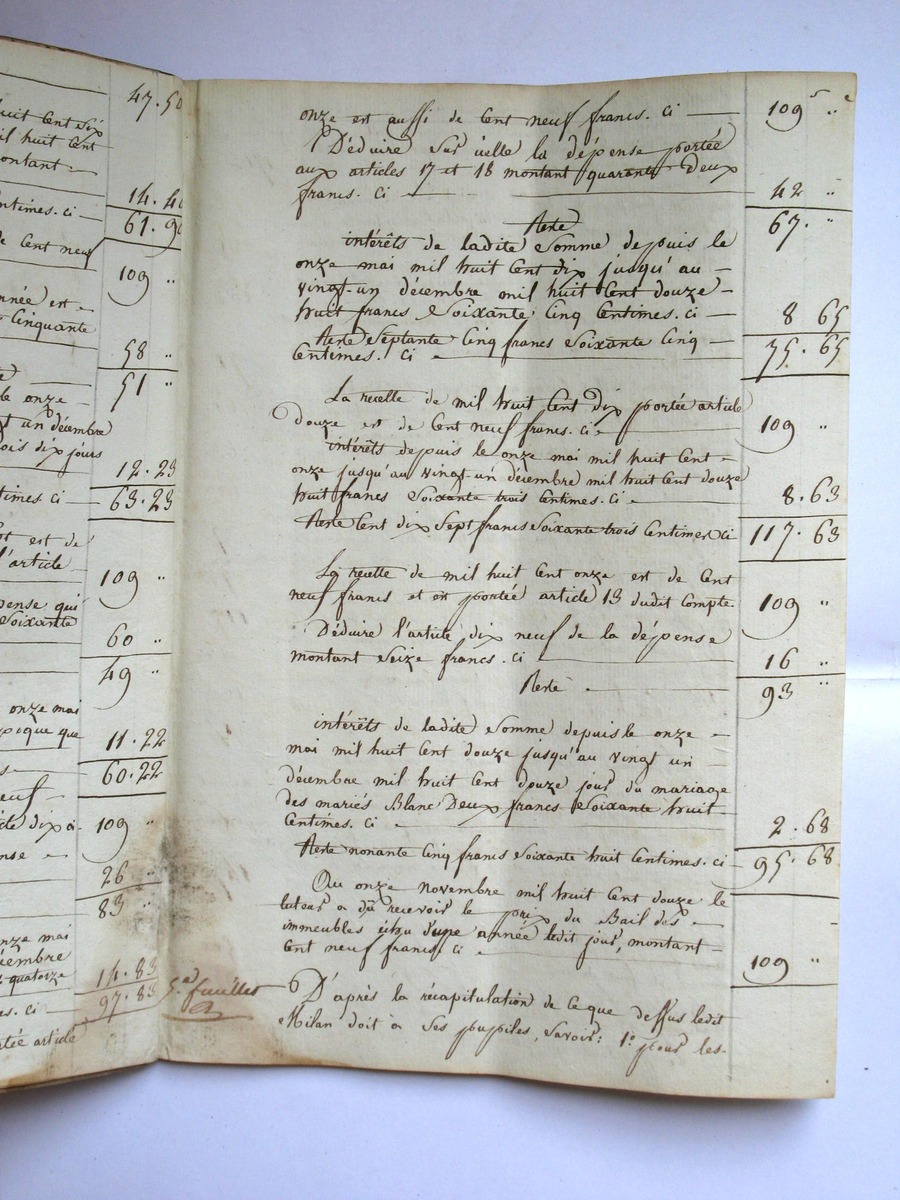 47.50
huit Cent Six
mil huit Cent
montant
14.40
centimes. Ci
61.90
Cent neuf
109 "
année est
Cinquante
58 "
51 "
le onze
vingt un décembre
mois dix jours
12.23
centimes Ci
63.23
est de
l'article
109 "
dépense qui
Soixante
60 "
49 "
onze mai
époque que
11.22
60.22
neuf
article dix
109 "
dépense
26 "
83 "
onze mai
décembre
quatorze
14.83
Ci
97.83
portée article
5.e feuillet
onze est aussi de Cent neuf francs. Ci 109 "
Déduire sur icelle la dépense portée
aux articles 17 et 18 montant quarante Deux
francs. Ci 42 "
Reste 67. "
intérêts de ladite Somme depuis le
onze mai mil huit Cent dix jusqu'au
vingt-un décembre mil huit Cent douze
huit francs Soixante Cinq Centimes. Ci 8 65
Reste Septante Cinq francs Soixante Cinq
Centimes. Ci 75.65
La recette de mil huit Cent Dix portée article
douze est de Cent neuf francs. Ci 109 "
intérêts depuis le onze mai mil huit Cent
onze jusqu'au vingt-un décembre mil huit Cent douze
huit francs Soixante trois Centimes. Ci 8.63
Reste Cent dix Sept francs Soixante trois Centimes Ci 117.63
La recette de mil huit Cent onze est de Cent
neuf francs et est portée article 13 dudit Compte. 109 "
Déduire l'article dix neuf de la dépense
montant Seize francs. Ci 16 "
Reste 93 "
intérêts de ladite Somme depuis le onze
mai mil huit Cent douze jusqu'au vingt un
décembre mil huit Cent douze jour du mariage
des mariés Blanc Deux francs Soixante huit
Centimes. Ci 2.68
Reste nonante Cinq francs Soixante huit Centimes. Ci 95.68
Au onze novembre mil huit Cent douze le
tuteur a dû recevoir le prix du Bail des
immeubles échu d'une année ledit jour, montant
Cent neuf francs Ci 109 "
D'après la récapitulation de Ce que dessus ledit
Milan doit à Ses pupiles, Savoir: 1.º pour les